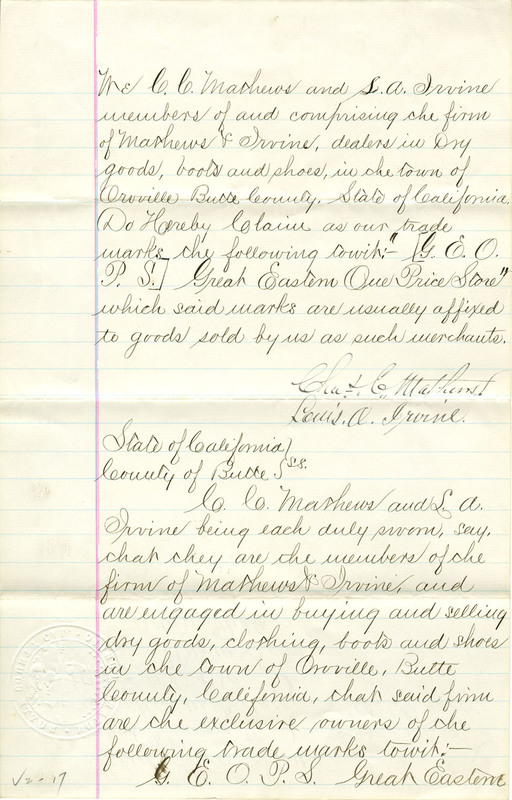 We C. C. Mathews and L. A. Irvine
members of and comprising the firm
of Mathews & Irvine, dealers in Dry
goods, boots and shoes, in the town of
Oroville Butte County, State of California.
Do Hereby Claim as our trade
marks the following towit:- "[G. E. O.
P. S.] Great Eastern One Price Store"
which said marks are usually affixed
to goods sold by us as such merchants.
Chas. C. Mathews
Louis. A. Irvine.
State of California }
County of Butte } ss.
C. C. Mathews and L. A.
Irvine being each duly sworn, say,
that they are the members of the
firm of Mathews & Irvine, and
are engaged in buying and selling
dry goods, clothing, boots and shoes
in the town of Oroville, Butte
County, California, that said firm
are the exclusive owners of the
following trade marks towit:-
G. E. O. P. S. Great Eastern